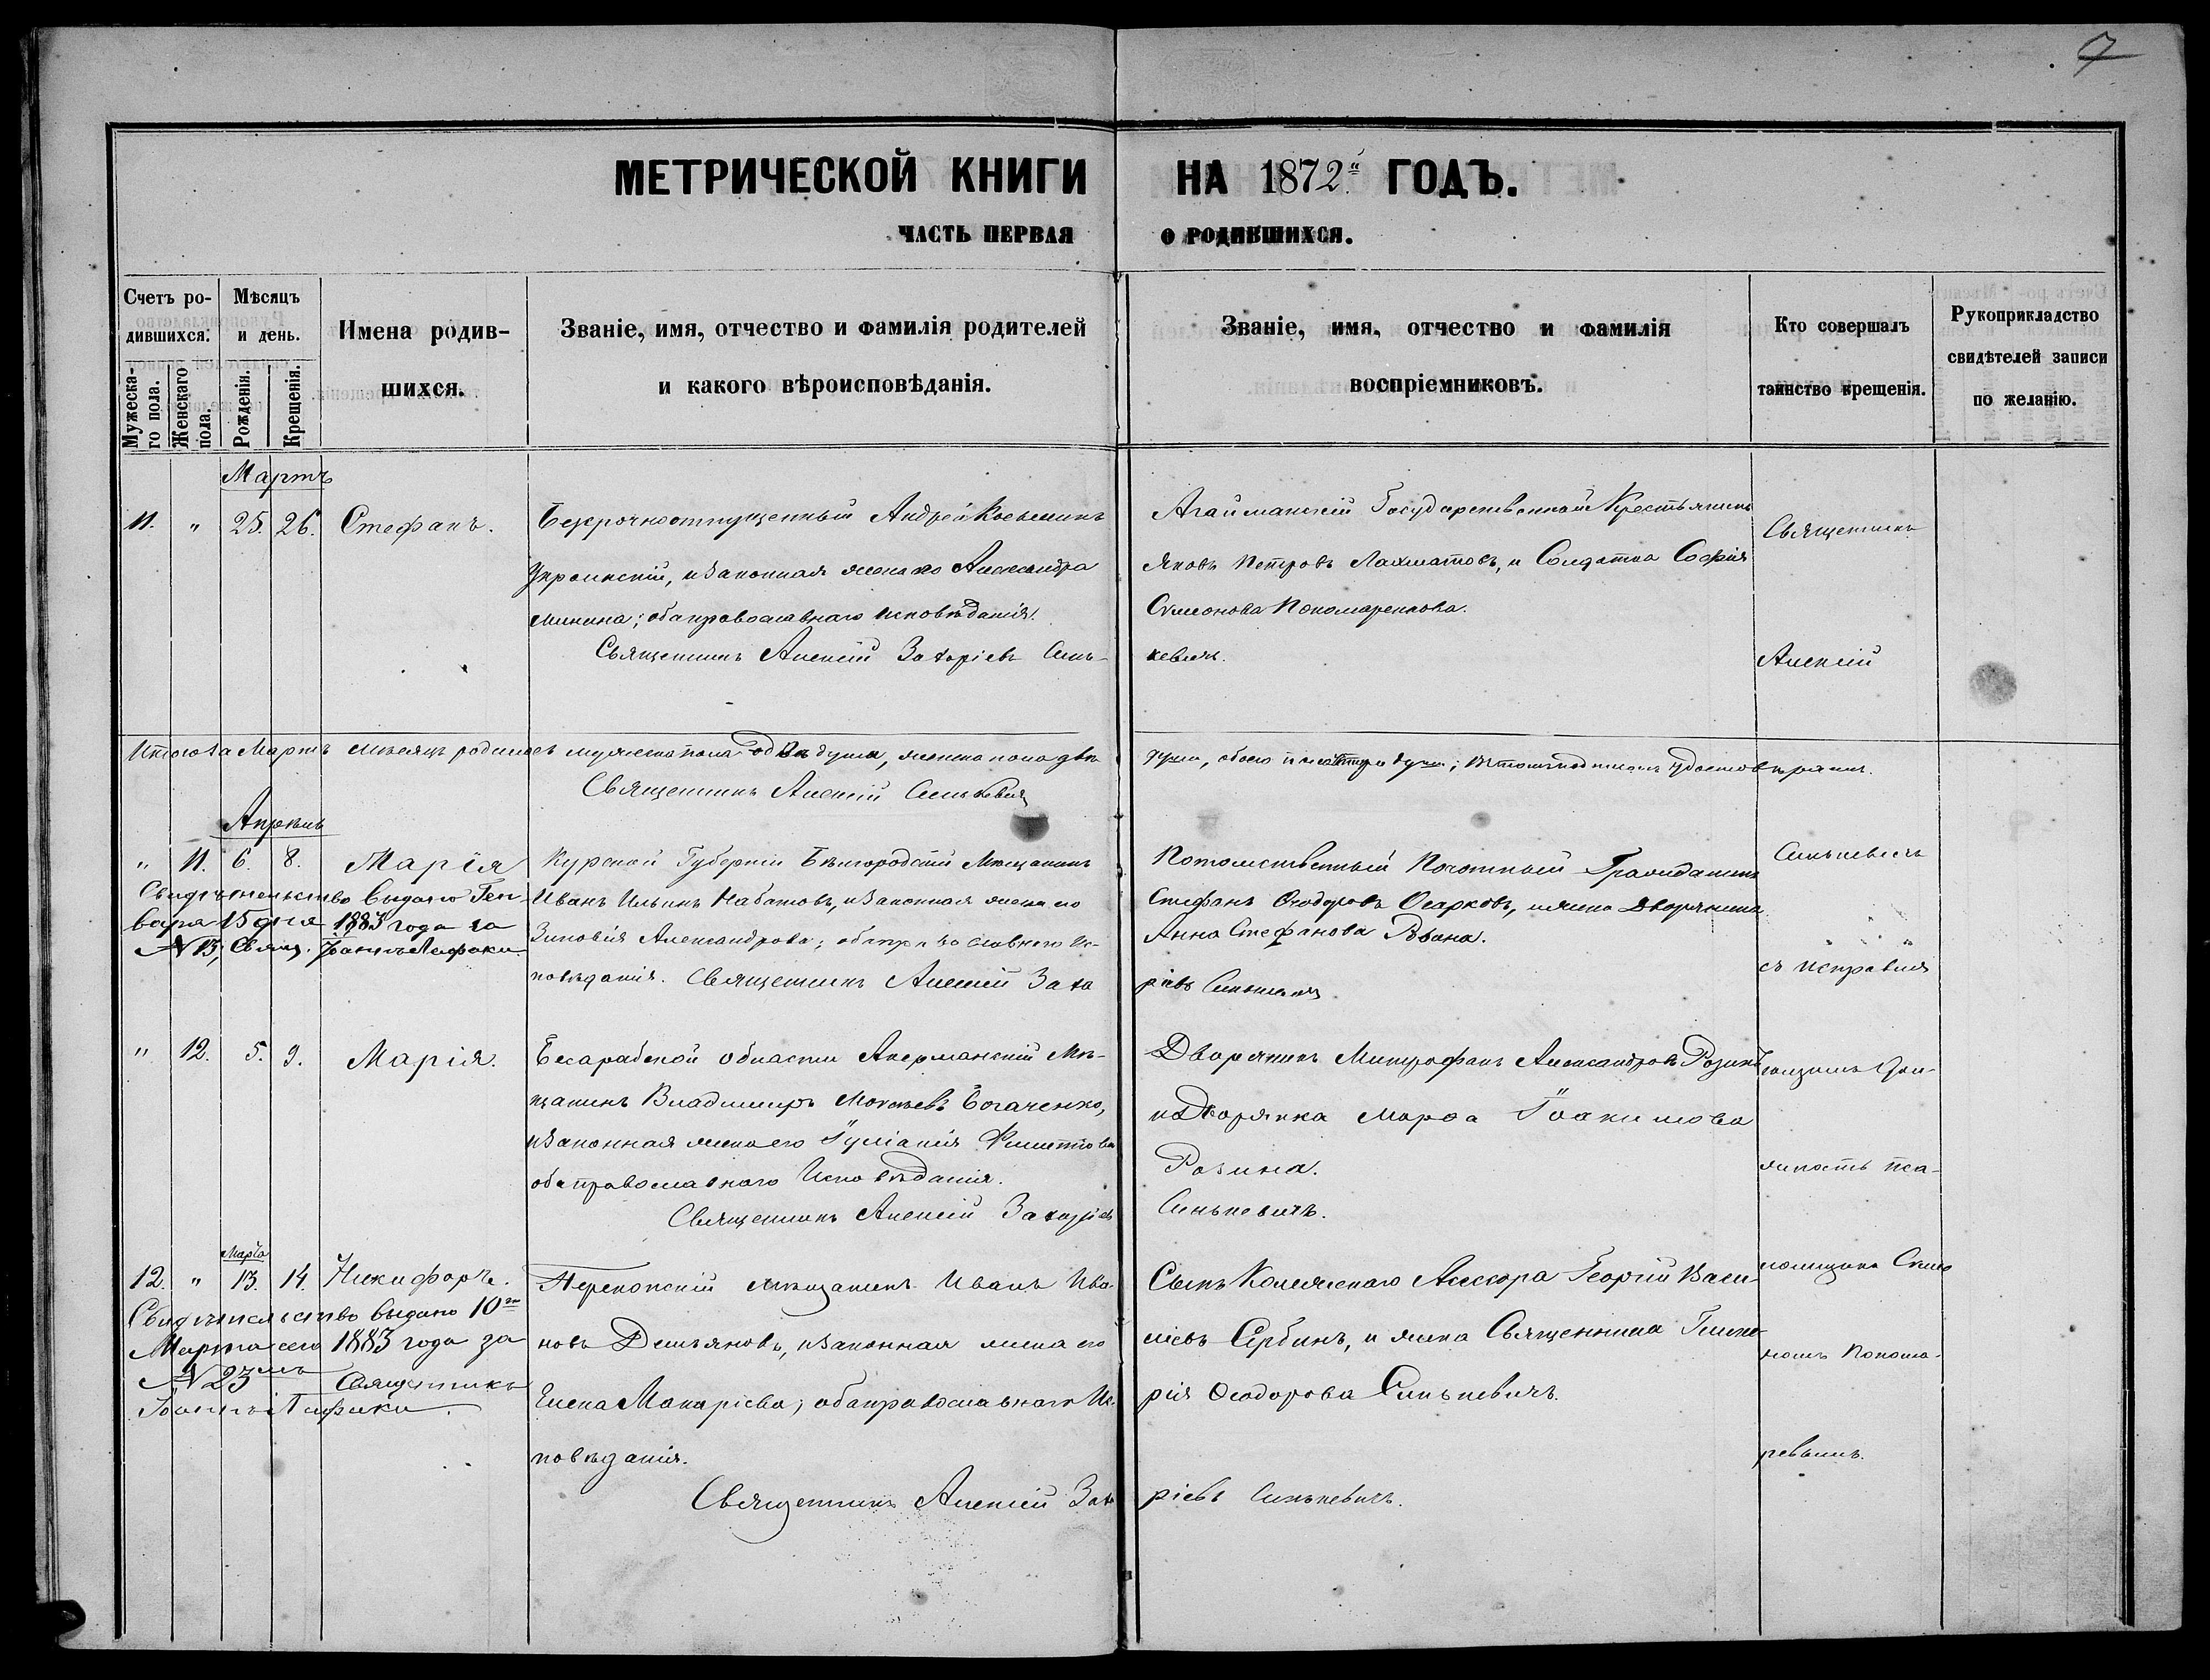 7
МЕТРИЧЕСКОЙ КНИГИ НА 1872й ГОДЪ.
ЧАСТЬ ПЕРВАЯ О РОДИВШИХСЯ.
Счетъ родившихся.
Мужескаго пола.
Женскаго пола.
Мѣсяцъ и день.
Рожденія.
Крещенія.
Имена родив-
шихся.
Званіе, имя, отчество и фамилія родителей
и какого вѣроисповѣданія.
Званіе, имя, отчество и фамилія
воспріемниковъ.
Кто совершалъ
таинство крещенія.
Рукоприкладство
свидѣтелей записи
по желанію.
Мартъ
11. " 25. 26. Стефанъ.
Безсрочноотпущенный Андрей
Украинскій, и законная жена его Александра
Минина; оба православнаго исповѣданія.
Священникъ Алексій Захаріевъ Синь-
кевичъ.
Агайманскій Государственной Крестьянинъ
Яковъ Петровъ Лахматовъ, и Солдатка Софія
Симонова Пономаренкова.
Священникъ
Алексій
Итого за Мартъ мѣсяцъ родилось мужеска пола одна душа, женска пола двѣ
души, обоего пола три души; въ томъ подписомъ удостовѣряемъ.
Священникъ Алексій Синькевичъ
Апрѣль
" 11. 6. 8. Марія
Свидѣтельство выдано Ген-
варя 15 дня 1883 года за
№ 13, Свящ. Іоаннъ
Курской Губерніи Бѣлгородскій Мѣщанинъ
Иванъ Ильинъ Набатовъ, и законная жена его
Зиновія Александрова; оба православнаго Ис-
повѣданія. Священникъ Алексій Заха
ріевъ Синькевичъ
Потомственный Почотный Гражданинъ
Стефанъ Ѳеодоровъ, и жена Дворянина
Анна Стефанова
Синькевичъ
" " "
съ исправля
" 12. 5. 9. Марія.
Бесарабской области Акерманскій Мѣ-
щанинъ Владимиръ Богаченко,
и законная жена его Іуліанія Филиппова
оба православнаго Исповѣданія.
Священникъ Алексій Захаріевъ
Синькевичъ.
Дворянинъ Митрофанъ Александровъ Розинъ
и Дворянка Марѳа Іоакимова
Розина.
ющимъ дол-
жность пса-
Марта
12. " 13. 14. Никифоръ.
Свидѣтельство выдано 10го
Марта сего 1883 года за
№ 23мъ Священникъ
Іоаннъ
Перекопскій мѣщанинъ Иванъ Ива-
новъ Демьяновъ, и законная жена его
Елена Макаріева; оба православнаго Ис-
повѣданія.
Священникъ Алексій Заха
ріевъ Синькевичъ.
Сынъ Колежскаго Асессора Георгій Васи-
ліевъ Сербинъ, и жена Священника Глике-
рія Ѳеодорова Синькевичъ.
ломщика
номъ Понома-
ревымъ.